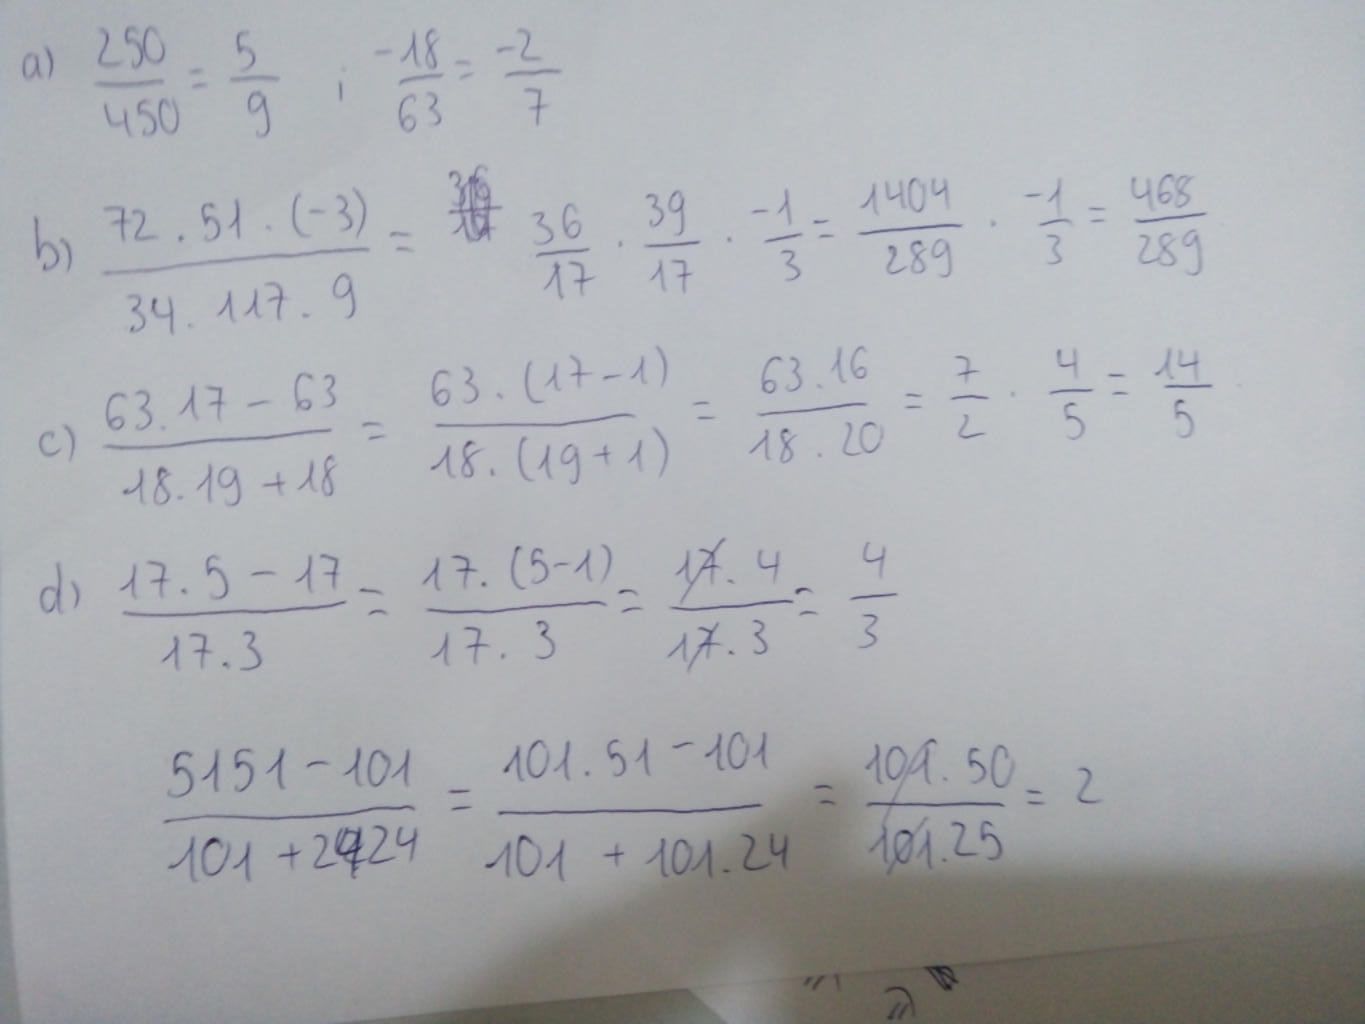 a) 250/450 = 5/9 ; -18/63 = -2/7
b) 72.51.(-3)/34.117.9 = 36/17 . 39/17 . -1/3 = 1404/289 . -1/3 = 468/289
c) 63.17-63/18.19+18 = 63.(17-1)/18.(19+1) = 63.16/18.20 = 7/2 . 4/5 = 14/5
d) 17.5-17/17.3 = 17.(5-1)/17.3 = 17.4/17.3 = 4/3
5151-101/101+2424 = 101.51-101/101+101.24 = 101.50/101.25 = 2